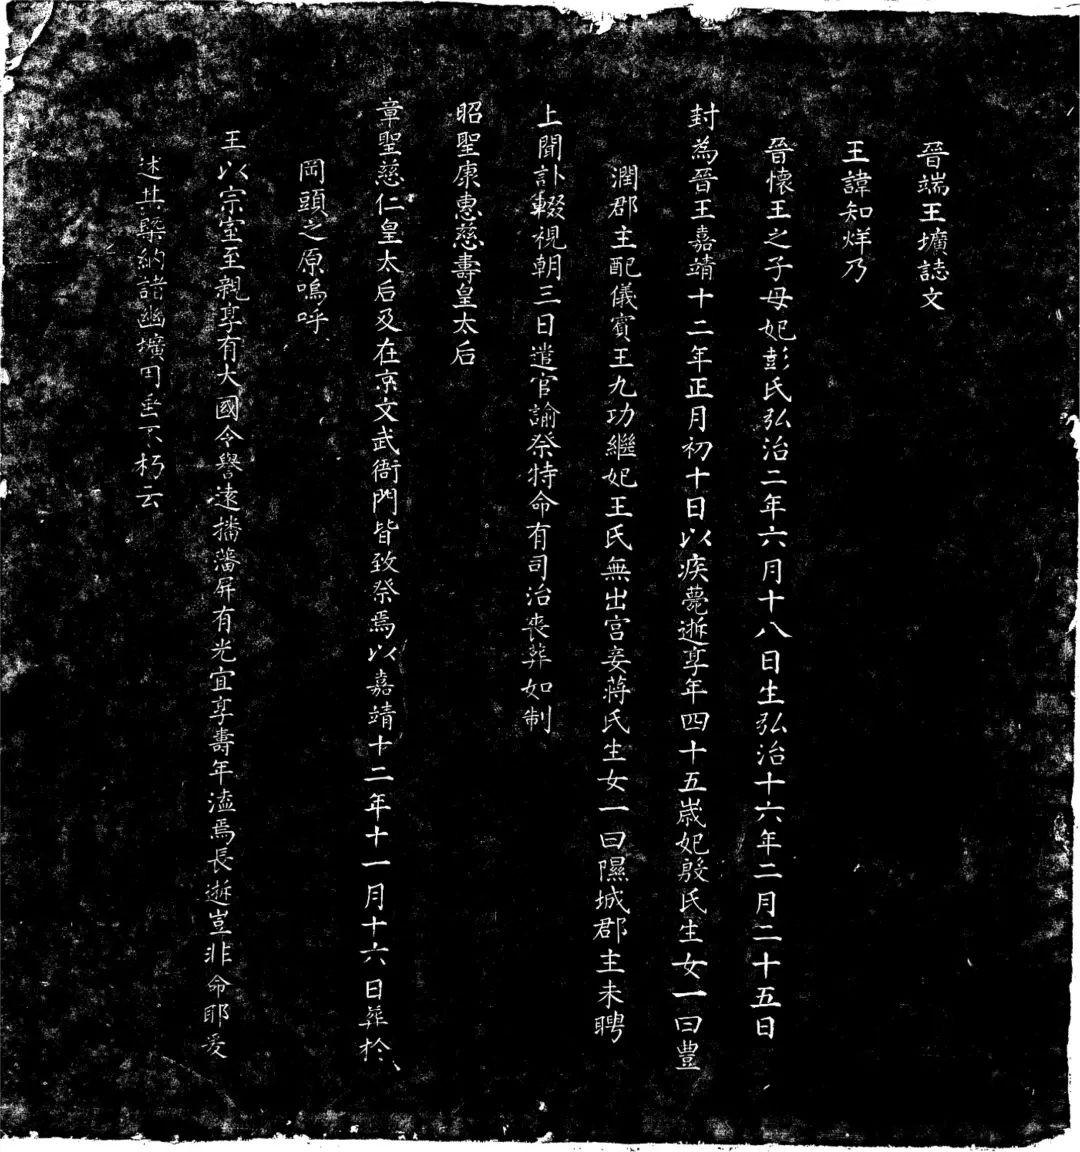 晉端王壙誌文
王諱知烊乃
晉懷王之子母妃彭氏弘治二年六月十八日生弘治十六年二月二十五日
封為晉王嘉靖十二年正月初十日以疾薨逝享年四十五嵗妃殷氏生女一曰豊
潤郡主配儀賓王九功繼妃王氏無出宫妾蔣氏生女一曰隰城郡主未聘
上聞訃輟視朝三日遣官諭祭特命有司治喪葬如制
昭聖康惠慈壽皇太后
章聖慈仁皇太后及在京文武衙門皆致祭焉以嘉靖十二年十一月十六日葬於
岡頭之原嗚呼
王以宗室至親享有大國令譽遠播藩屏有光宜享壽年溘焉長逝豈非命耶爰
述其槩納諸幽壙用垂不朽云